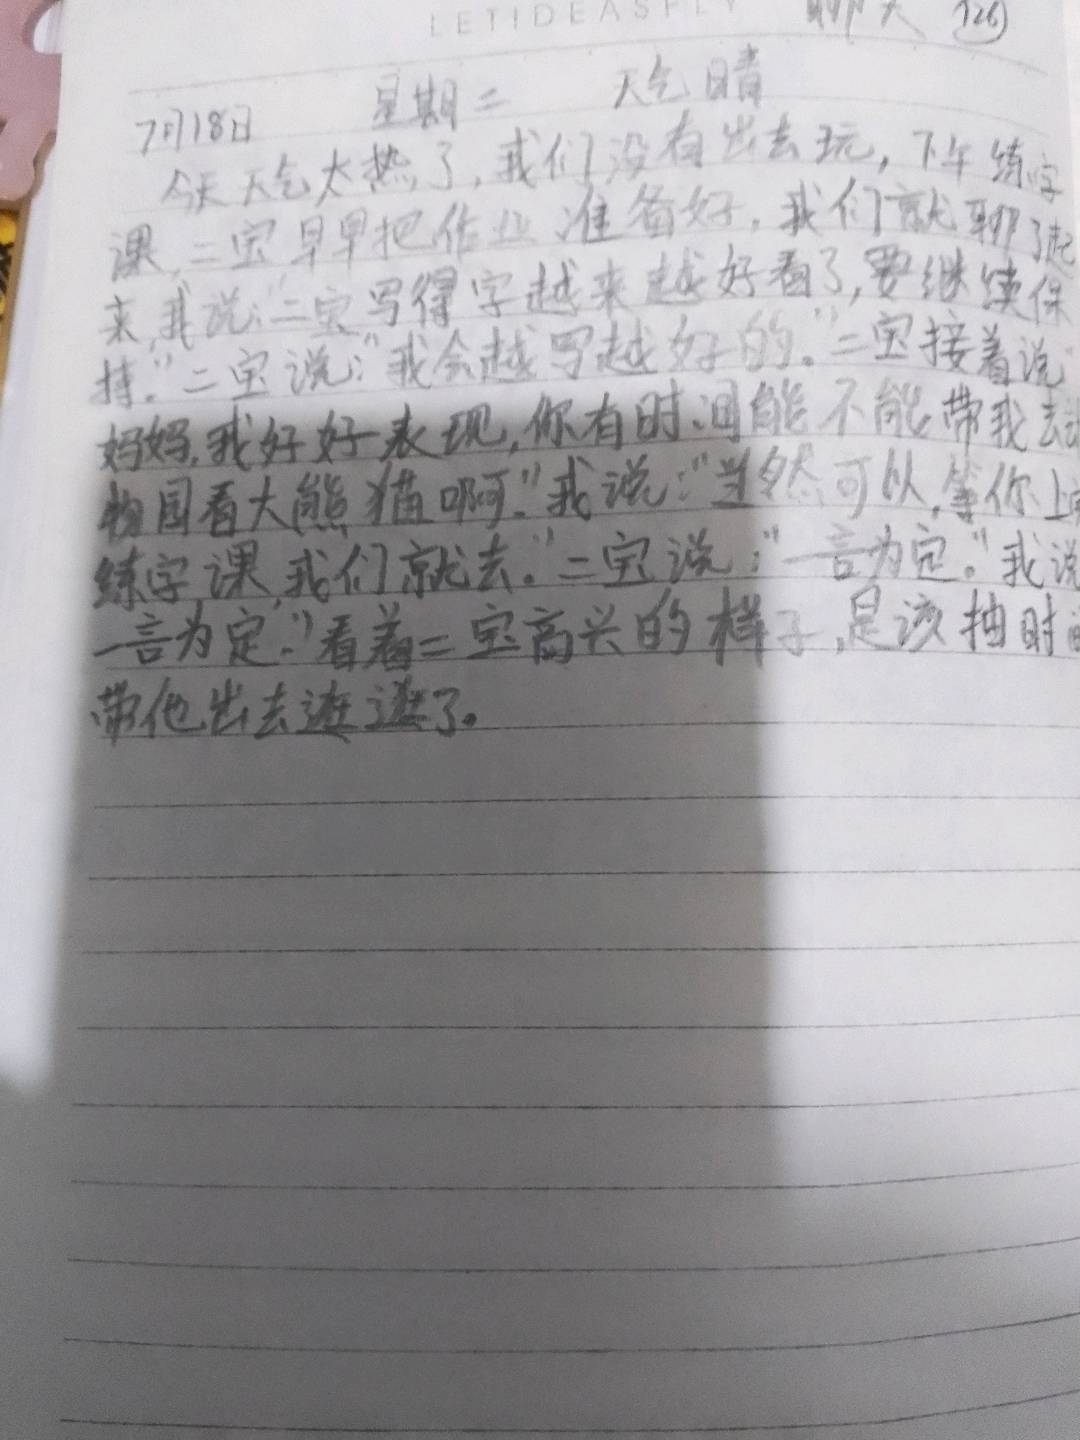 LETIDEASFLY 聊天 126
7月18日 星期二 天气晴
今天天气太热了,我们没有出去玩,下午练字
课,二宝早早把作业准备好,我们就聊了起
来,我说:“二宝写得字越来越好看了,要继续保
持.”二宝说:“我会越写越好的。”二宝接着说
妈妈,我好好表现,你有时间能不能带我去动
物园看大熊猫啊.”我说:“当然可以,等你上完
练字课,我们就去.”二宝说:“一言为定。”我说
一言为定.”看着二宝高兴的样子,是该抽时间
带他出去逛逛了。